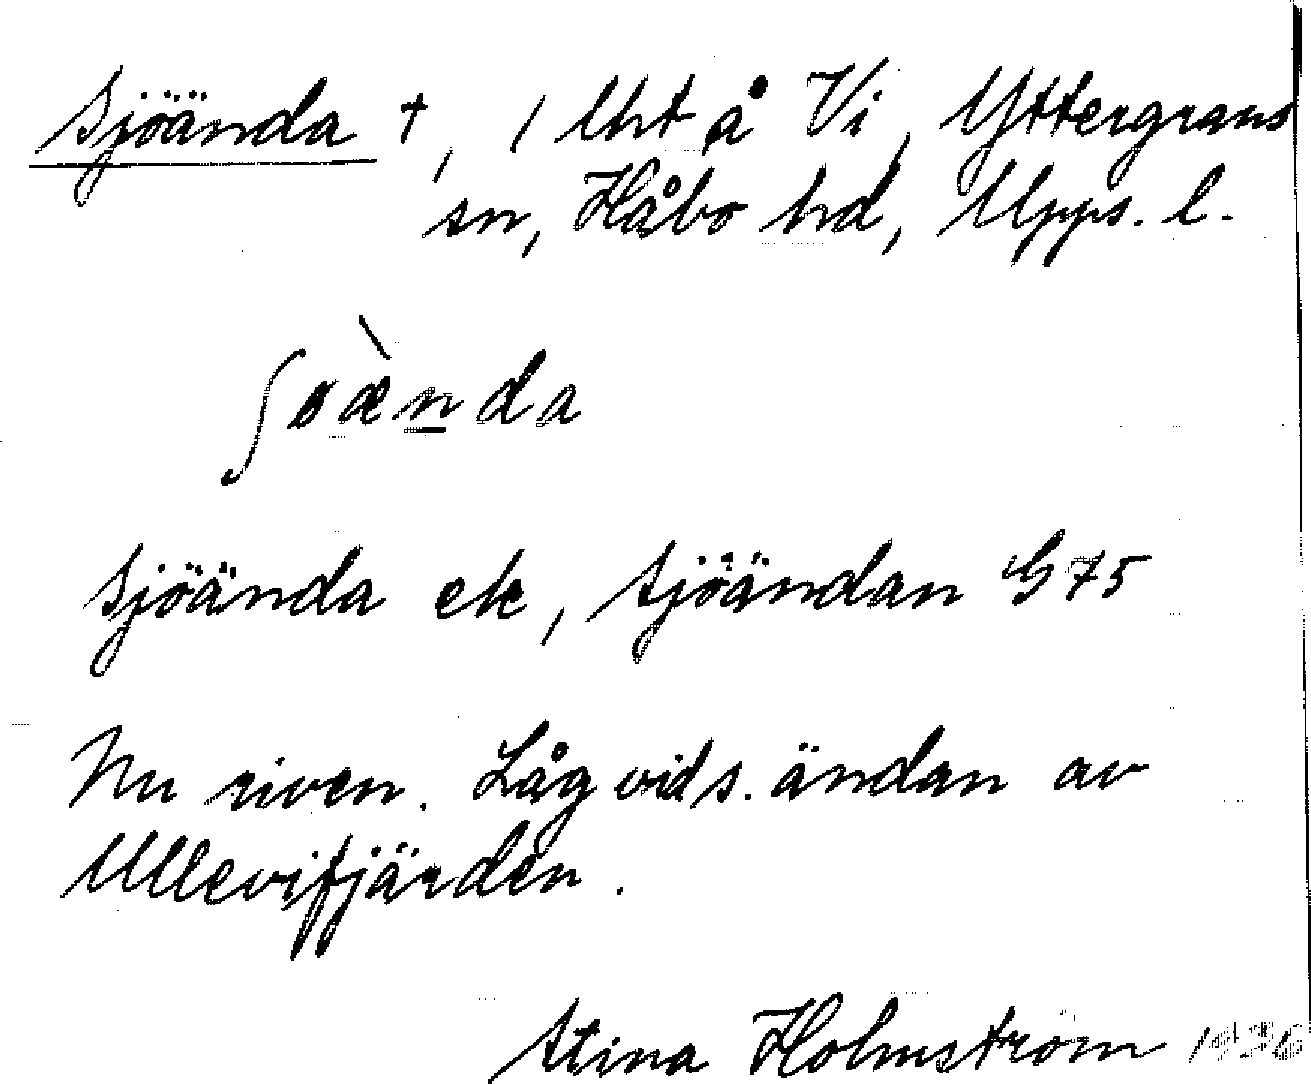 Sjöända †, 1 lht å Vi, Yttergrans
sn, Håbo hd, Upps. l.
ʃøæ̀nda
Sjöända ek, Sjöändan G 75
Nu riven. Låg vid s. ändan av
Ullevifjärden.
Stina Holmström 1936